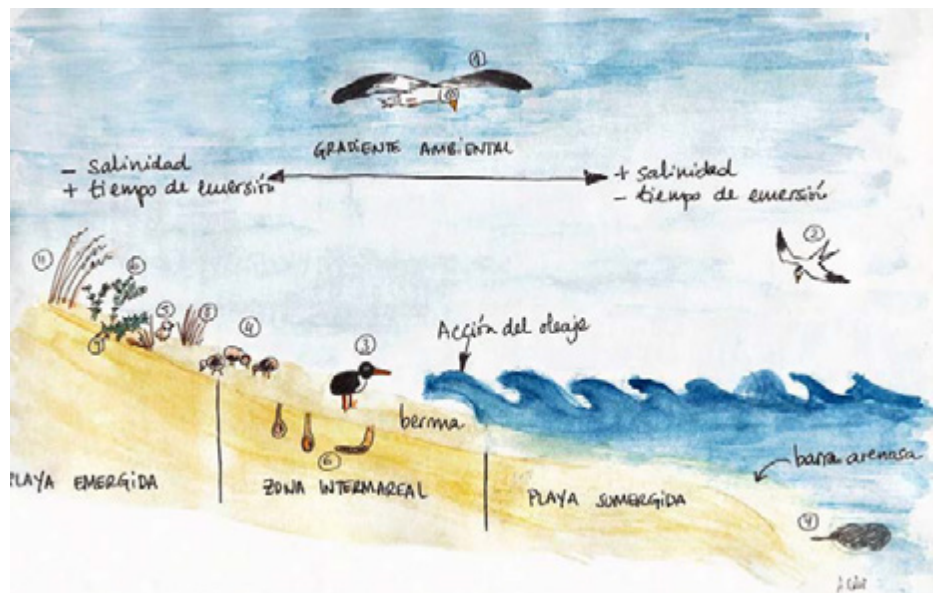 ①
GRADIENTE AMBIENTAL
- salinidad
+ tiempo de emersión
+ salinidad
- tiempo de emersión
②
⑤
④
③
Acción del oleaje
berma
⑥
barra arenosa
PLAYA EMERGIDA
ZONA INTERMAREAL
PLAYA SUMERGIDA